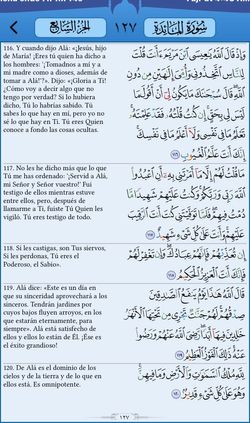 الجزء السابع ١٢٧ سورة المائدة
116. Y cuando dijo Alá: «¡Jesús, hijo
de María! ¿Eres tú quien ha dicho a
los hombres: '¡Tomadnos a mí y a
mi madre como a dioses, además de
tomar a Alá!'?». Dijo: «¡Gloria a Ti!
¿Cómo voy a decir algo que no
tengo por verdad? Si lo hubiera
dicho, Tú lo habrías sabido. Tú
sabes lo que hay en mí, pero yo no
sé lo que hay en Ti. Tú eres Quien
conoce a fondo las cosas ocultas.
وَإِذْ قَالَ ٱللَّهُ يَٰعِيسَى ٱبْنَ مَرْيَمَ ءَأَنتَ قُلْتَ
لِلنَّاسِ ٱتَّخِذُونِى وَأُمِّىَ إِلَٰهَيْنِ مِن دُونِ
ٱللَّهِ قَالَ سُبْحَٰنَكَ مَا يَكُونُ لِىٓ أَنْ أَقُولَ مَا
لَيْسَ لِى بِحَقٍّ إِن كُنتُ قُلْتُهُۥ فَقَدْ عَلِمْتَهُۥ
تَعْلَمُ مَا فِى نَفْسِى وَلَآ أَعْلَمُ مَا فِى نَفْسِكَ
إِنَّكَ أَنتَ عَلَّٰمُ ٱلْغُيُوبِ ١١٦
117. No les he dicho más que lo que
Tú me has ordenado: 'Servid a Alá,
mi Señor y Señor vuestro!' Fui
testigo de ellos mientras estuve
entre ellos, pero, después de
llamarme a Ti, fuiste Tú Quien les
vigiló. Tú eres testigo de todo.
مَا قُلْتُ لَهُمْ إِلَّا مَآ أَمَرْتَنِى بِهِۦٓ أَنِ ٱعْبُدُوا۟
ٱللَّهَ رَبِّى وَرَبَّكُمْ وَكُنتُ عَلَيْهِمْ شَهِيدًا مَّا
دُمْتُ فِيهِمْ فَلَمَّا تَوَفَّيْتَنِى كُنتَ أَنتَ ٱلرَّقِيبَ
عَلَيْهِمْ وَأَنتَ عَلَىٰ كُلِّ شَىْءٍ شَهِيدٌ ١١٧
118. Si les castigas, son Tus siervos,
Si les perdonas, Tú eres el
Poderoso, el Sabio».
إِن تُعَذِّبْهُمْ فَإِنَّهُمْ عِبَادُكَ وَإِن تَغْفِرْ لَهُمْ
فَإِنَّكَ أَنتَ ٱلْعَزِيزُ ٱلْحَكِيمُ ١١٨
119. Alá dice: «Este es un día en
que su sinceridad aprovechará a los
sinceros. Tendrán jardines por
cuyos bajos fluyen arroyos, en los
que estarán eternamente, para
siempre». Alá está satisfecho de
ellos y ellos lo están de Él. ¡Ése es
el éxito grandioso!
قَالَ ٱللَّهُ هَٰذَا يَوْمُ يَنفَعُ ٱلصَّٰدِقِينَ
صِدْقُهُمْ لَهُمْ جَنَّٰتٌ تَجْرِى مِن تَحْتِهَا ٱلْأَنْهَٰرُ
خَٰلِدِينَ فِيهَآ أَبَدًا رَّضِىَ ٱللَّهُ عَنْهُمْ وَرَضُوا۟
عَنْهُ ذَٰلِكَ ٱلْفَوْزُ ٱلْعَظِيمُ ١١٩
120. De Alá es el dominio de los
cielos y de la tierra y de lo que en
ellos está. Es omnipotente.
لِلَّهِ مُلْكُ ٱلسَّمَٰوَٰتِ وَٱلْأَرْضِ وَمَا فِيهِنَّ
وَهُوَ عَلَىٰ كُلِّ شَىْءٍ قَدِيرٌ ١٢٠
١٢٧